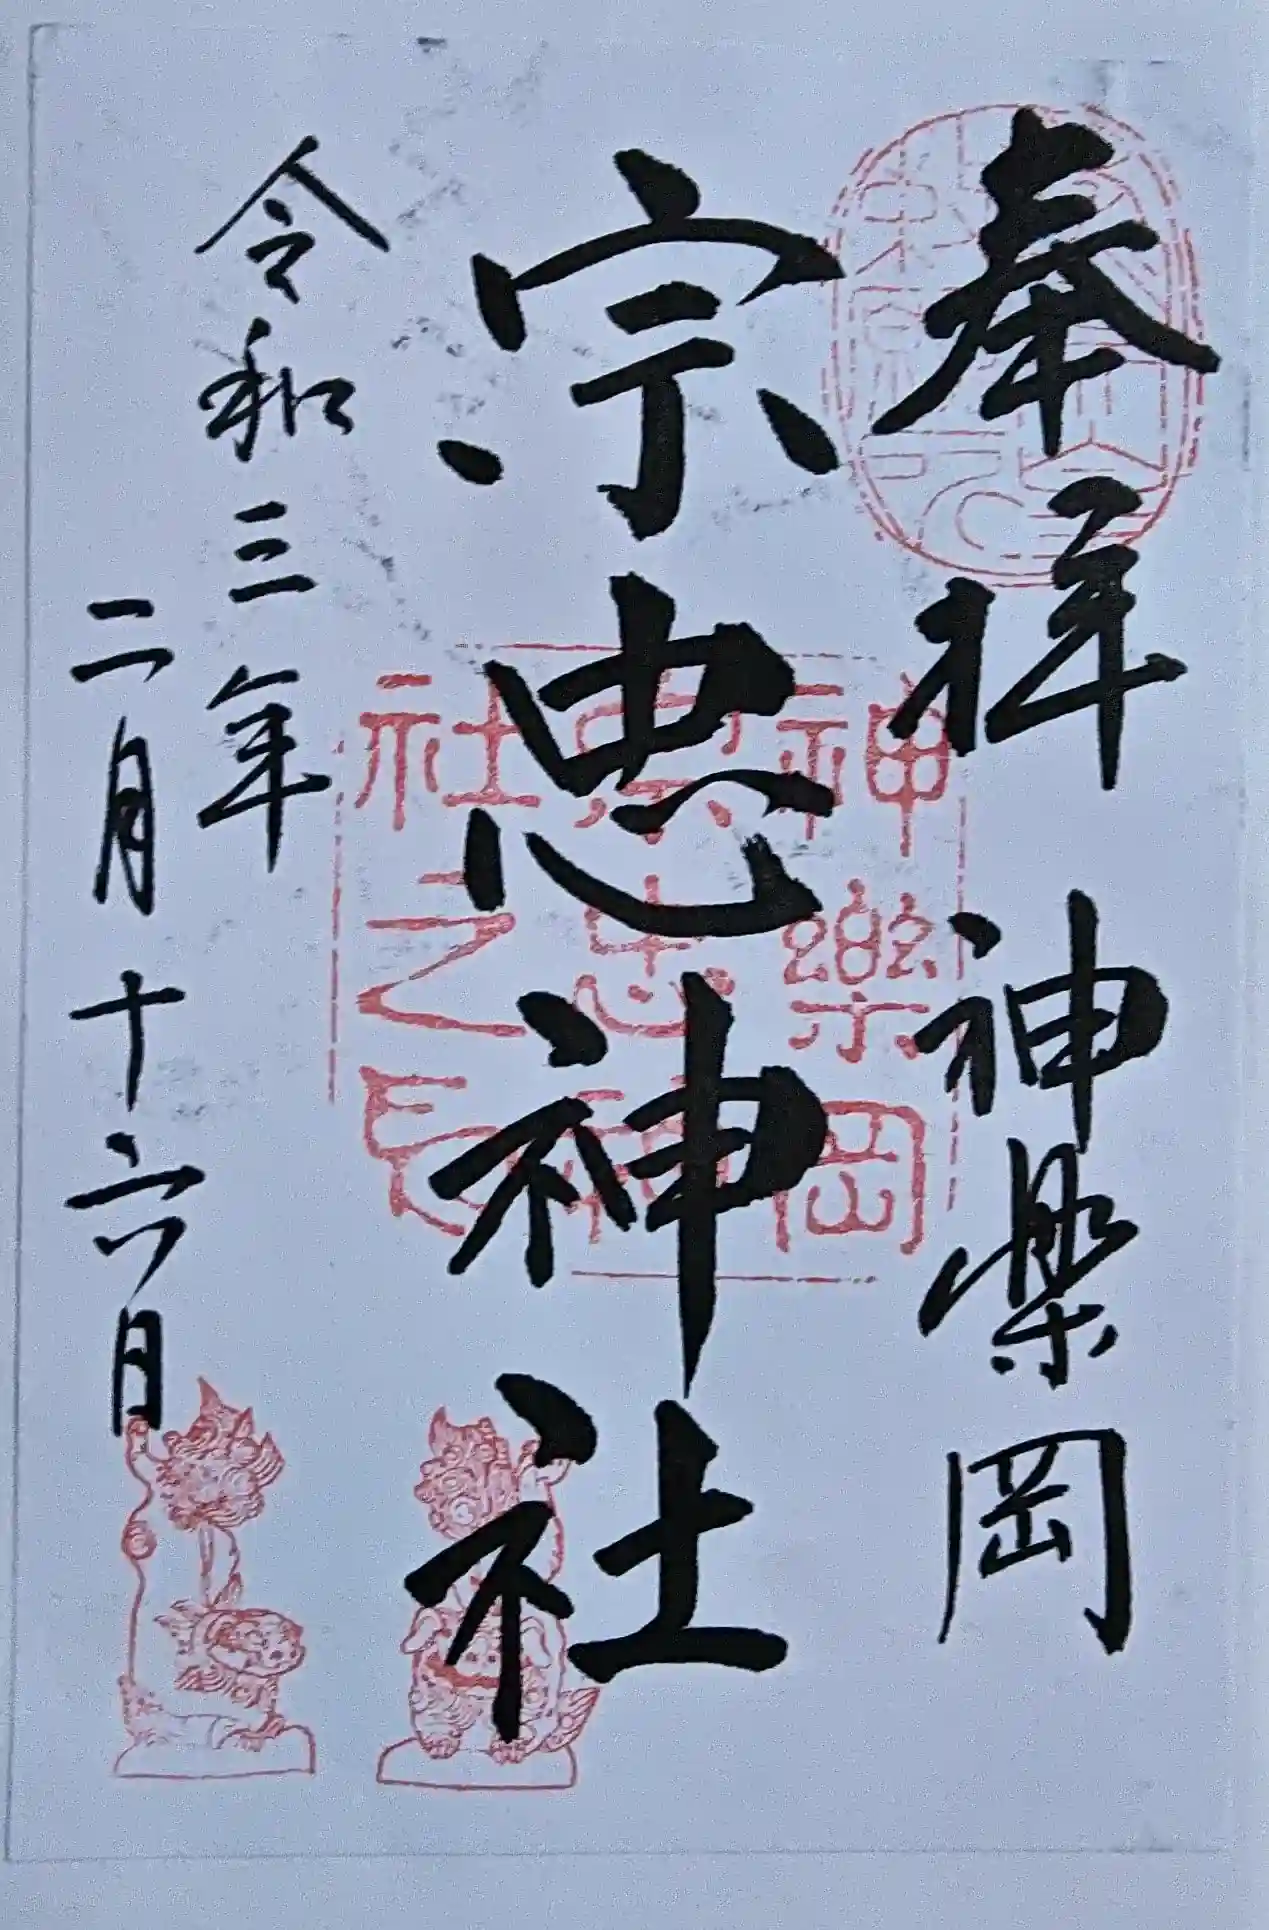 奉拝 神楽岡
宗忠神社
令和三年
二月十六日
神樂岡
宗忠神
社之印